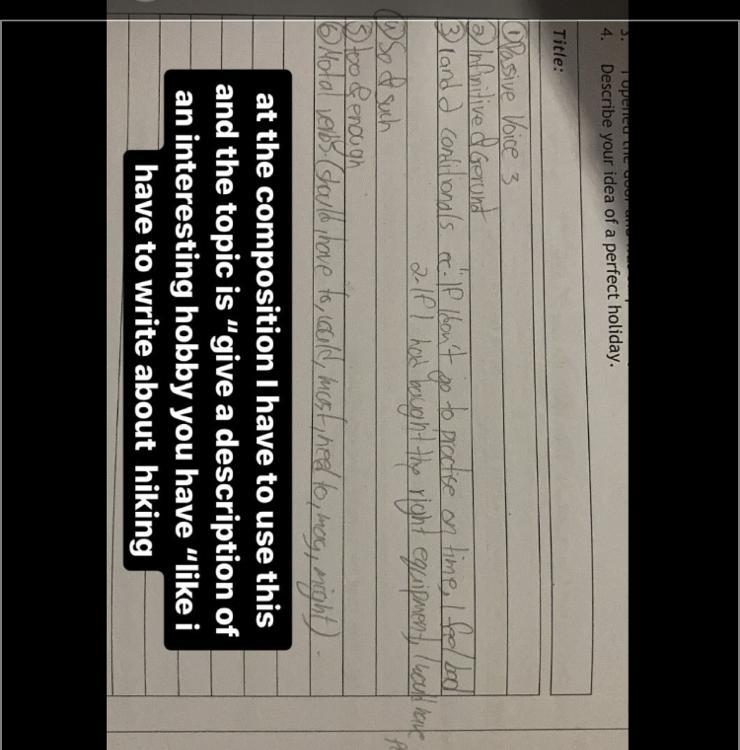 3. I opened the door and
4. Describe your idea of a perfect holiday.
Title:
① Passive Voice 3
② Infinitive & Gerund
③ 1 and 2 conditionals 1. If I don't go to practise on time, I feel bad
2. If I had bought the right equipment, I would have
④ So & such
⑤ too & enough
⑥ Modal verbs. (should, have to, could, must, need to, may, might)
at the composition I have to use this
and the topic is "give a description of
an interesting hobby you have "like i
have to write about hiking